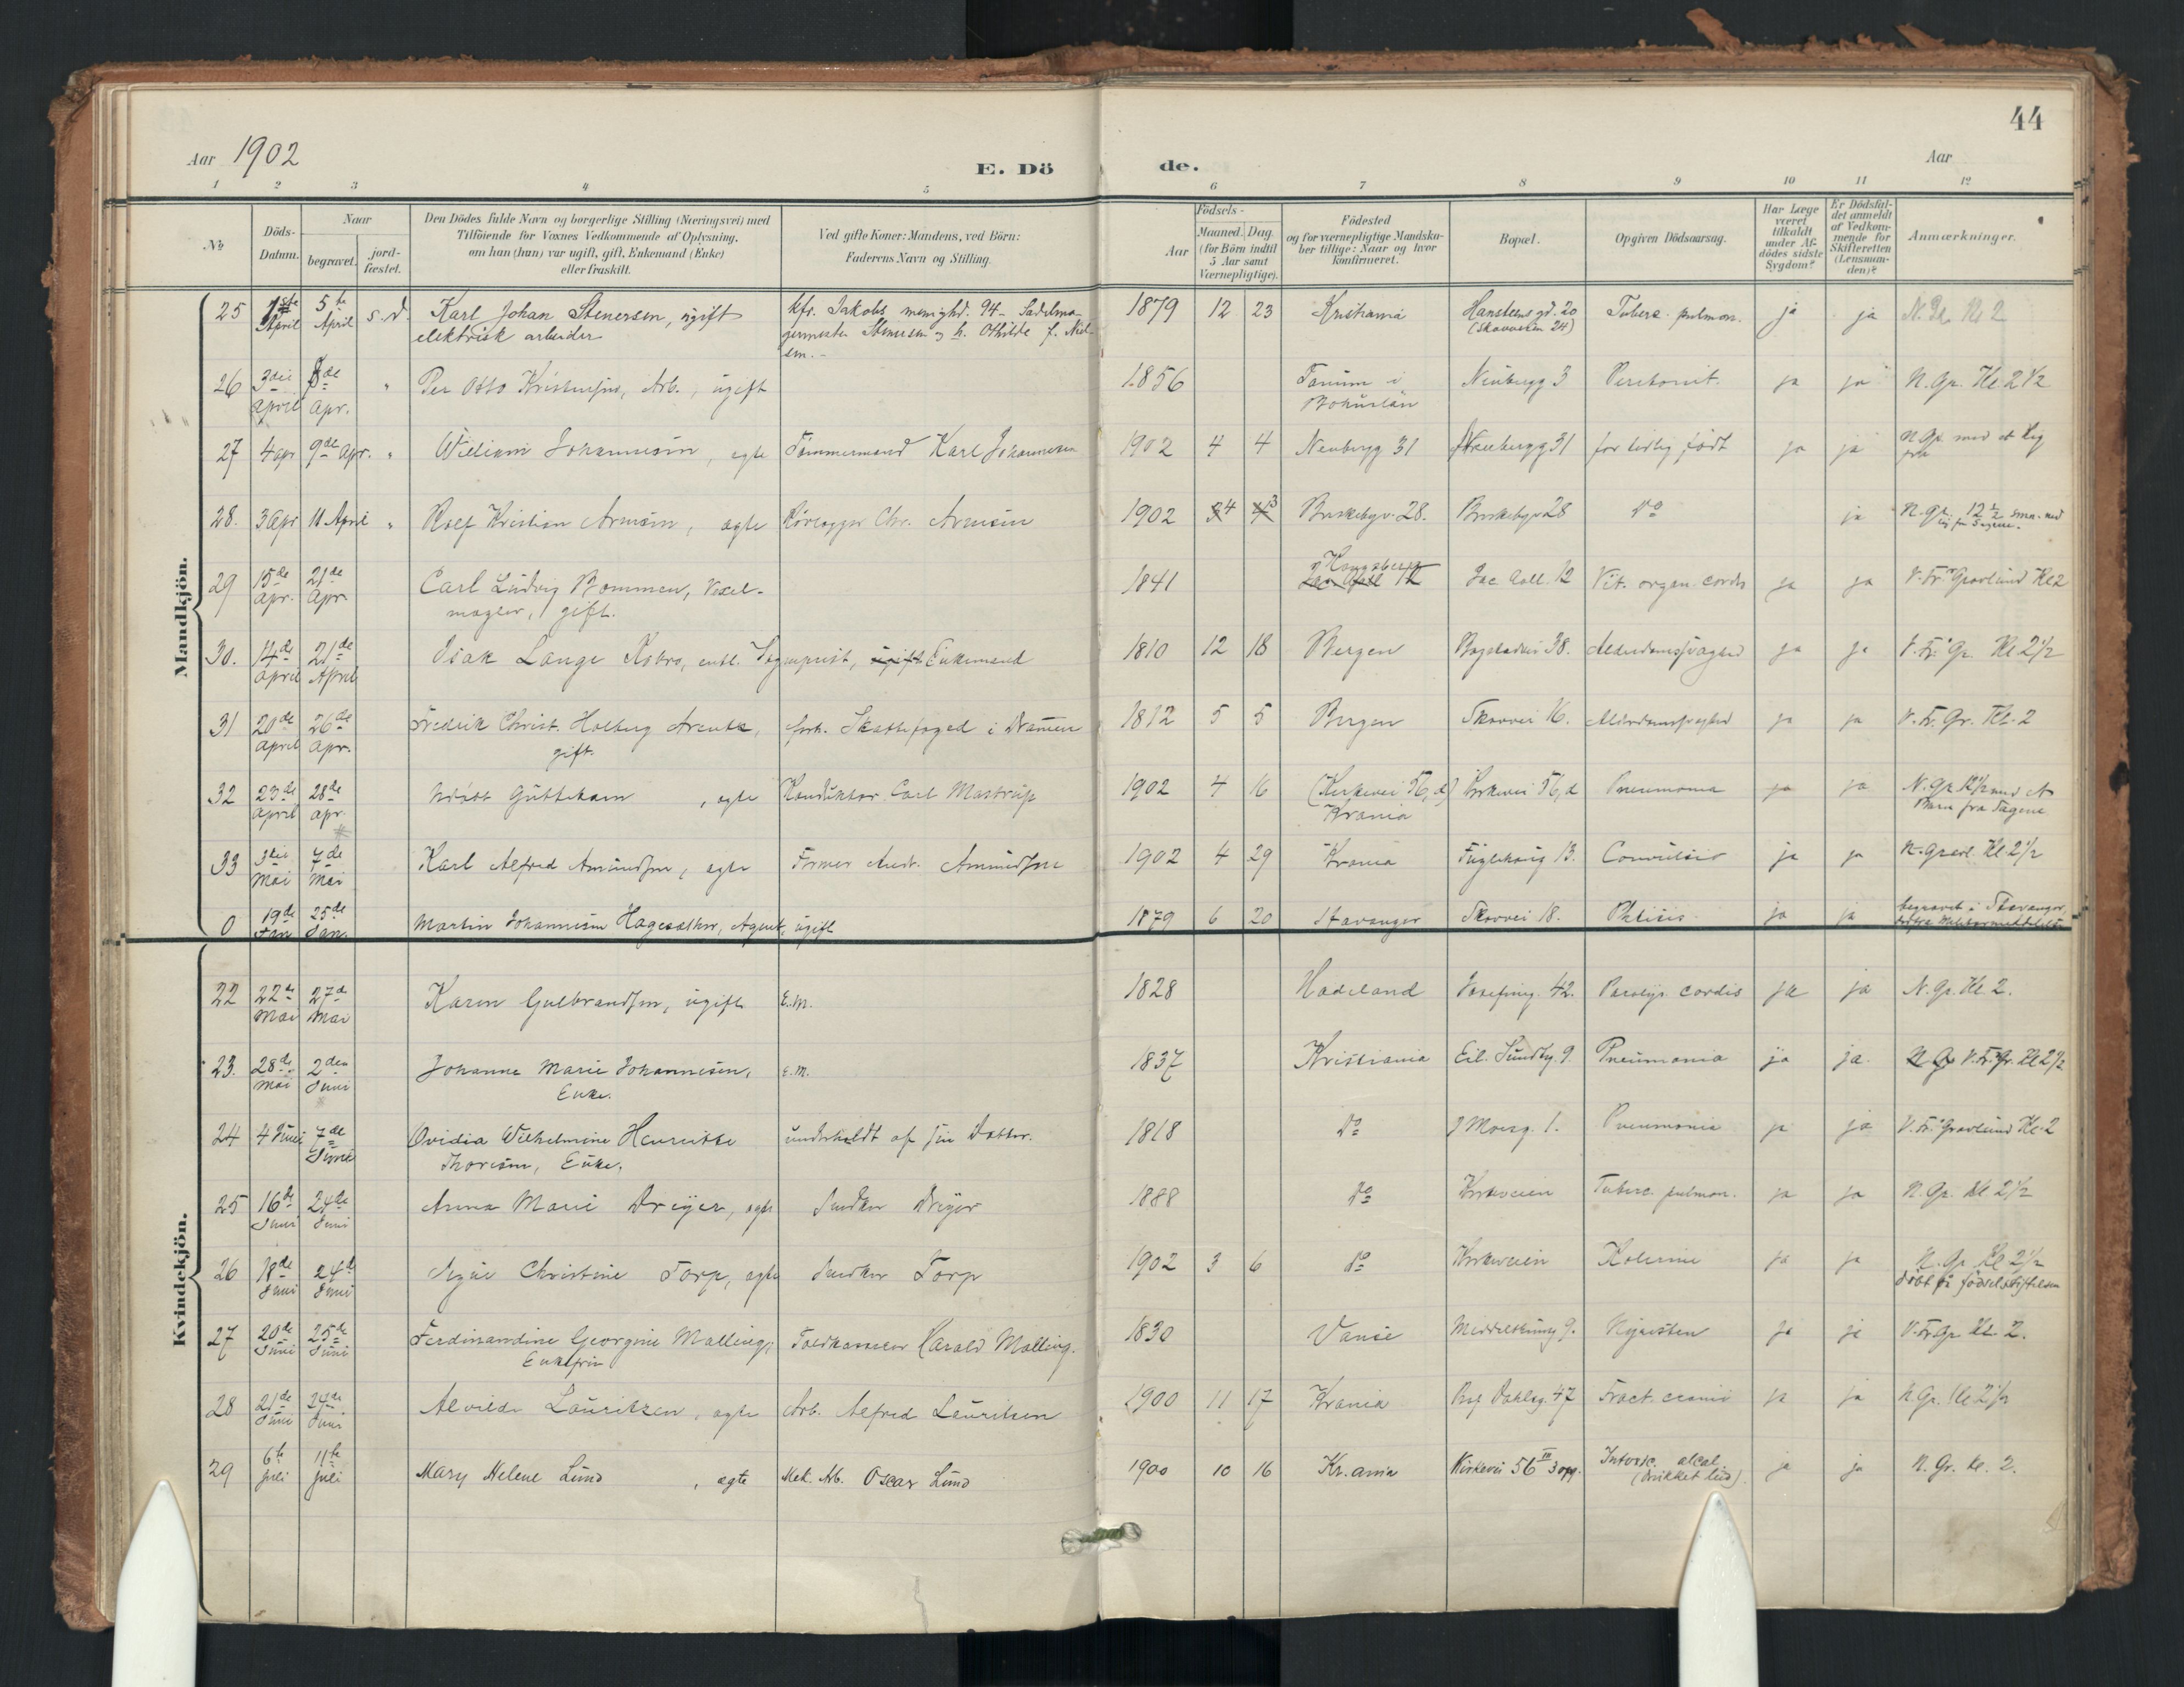 44
Aar 1902
E. Dö de.
Aar
1 2 3 4 5 6 7 8 9 10 11 12
No
Döds-Datum.
Naar begravet. jord-fæstet.
Den Dödes fulde Navn og borgerlige Stilling (Næringsvei) med
Tilföiende for Voxnes Vedkommende af Oplysning,
om han (hun) var ugift, gift, Enkemand (Enke)
eller fraskilt.
Ved gifte Koner: Mandens, ved Börn:
Faderens Navn og Stilling.
Födsels-
Aar Maaned. Dag.
(for Börn indtil
5 Aar samt
Værnepligtige).
Födested
og for værnepligtige Mandska-
ber tillige: Naar og hvor
konfirmeret.
Bopæl.
Opgiven Dödsaarsag.
Har Læge
været
tilkaldt
under Af-
dödes sidste
Sygdom?
Er Dödsfal-
det anmeldt
af Vedkom-
mende for
Skifteretten
(Lensman-
den)?
Anmærkninger.
Mandkjön.
25 1ste April 5te April s.d. Karl Johan Stenersen, ugift kfr. Jakobs menighd. 94 - Sadelma- 1879 12 23 Kristiania Hansteens gd. 20 Tuberc. pulmon. ja ja
elektrisk arbeider germester Stenersen og h. Othilde f. Niel-
sen.-
26 3die April 8de Apr. " Per Otto Kristensen, Arb., ugift 1856 Tanum i Bohuslän Neubergg 3 ja ja N. Gr. Kl 2 1/2
27 4 apr 9de Apr. " William Johannesen, ægte Tømmermand Karl Johannesen 1902 4 4 Neubergg 31 Neubergg 31 for tidlig født ja ja N Gr. med et Lig fra
28. 3 Apr 11 April " Rolf Kristian Arnesen, ægte Rørlegger Chr. Arnesen 1902 4 3 Briskebyv. 28. Briskebyv 28 Do ja N. Gr. 12 1/2 sm. med lig fra Sagene.
29 15de Apr. 21de Apr. Carl Ludvig Bommen, Vexel- 1841 Kongsberg Jac Aall. 12 Vit. organ. cordis ja ja V. Fr. Gravlund Kl 2
mægler, gift.
30. 14de April 21de April Isak Lange Kobro, entl. Sogneprest, Enkemand 1810 12 18 Bergen Bogstadvei 38. Alderdomssvaghed ja ja V. Fr. Gr. Kl 2 1/2
31 20de April 26de Apr. Fredrik Christ. Holberg Arentz, forh. Skattefoged i Drammen 1812 5 5 Bergen Skovvei 16. Alderdomssvaghed ja ja V. Fr. Gr. Kl. 2
gift.
32 23de April 28de Apr. Udøbt Guttebarn, ægte Konduktør Carl Mastrup 1902 4 16 (Kirkevei 56, d) Krania Kirkevei 56, d Pneumonia ja ja N. Gr. 12 1/2 med et Barn fra Sagene
33 3die Mai 7de Mai Karl Alfred Amundsen, ægte Former Andr. Amundsen 1902 4 29 Krania Fuglehaug 13. Convulsio ja ja N. Gravl. Kl 2 1/2
0 19de Jan 25de Jan. Martin Johannesen Hagesæther, Agent, ugift 1879 6 20 Stavanger Skovvei 18. Phtisis ja ja begravet i Stavanger,
Kvindekjön.
22 22de Mai 27de Mai Karen Gulbrandsen, ugift E.M. 1828 Hadeland Josefinsg. 42. Paralys. cordis ja ja N. Gr. Kl 2.
23. 28de Mai 2den Juni Johanne Marie Johannesen, E.M. 1837 Kristiania Eil. Sundtsg. 9. Pneumonia ja ja. V. Fr. Gr. Kl 2 1/2
Enke.
24 4 Juni 7de Juni Ovidia Wilhelmine Henriette underholdt af sin Datter. 1818 Do J Moesg. 1. Pneumonia ja ja V. Fr. Gravlund Kl. 2
Thoresen, Enke.
25 16de Juni 24de Juni Anna Marie Dreyer, ægte Snedker Dreyer 1888 Do Kirkeveien Tuberc. pulmon. ja ja N. Gr. Kl 2 1/2
26 18de Juni 24de Juni Christine Torp, ægte Snedker Torp 1902 3 6 Do Kirkeveien Kolerine ja ja N. Gr Kl 2 1/2
døbt på fødselsstiftelsen
27 20de Juni 25de Juni Ferdinandine Georgine Malling, Toldkasserer Harald Malling. 1830 Vanse Middelthunsg 9. ja ja V. Fr. Gr. Kl. 2.
Enkefru
28 21de Juni 24de Juni Alvilde Lauritzen, ægte Arb. Alfred Lauritsen 1900 11 17 Krania Dahlsg. 47 Fract. cranii ja ja N. Gr. Kl 2 1/2
29 6te juli 11te juli Mary Helene Lund, ægte Mek. Arb. Oscar Lund 1900 10 16 Kr.ania Kirkevei 56 III 3 opg. Intoxic. alcal. (Drikket lud). ja ja N. Gr. kl. 2.